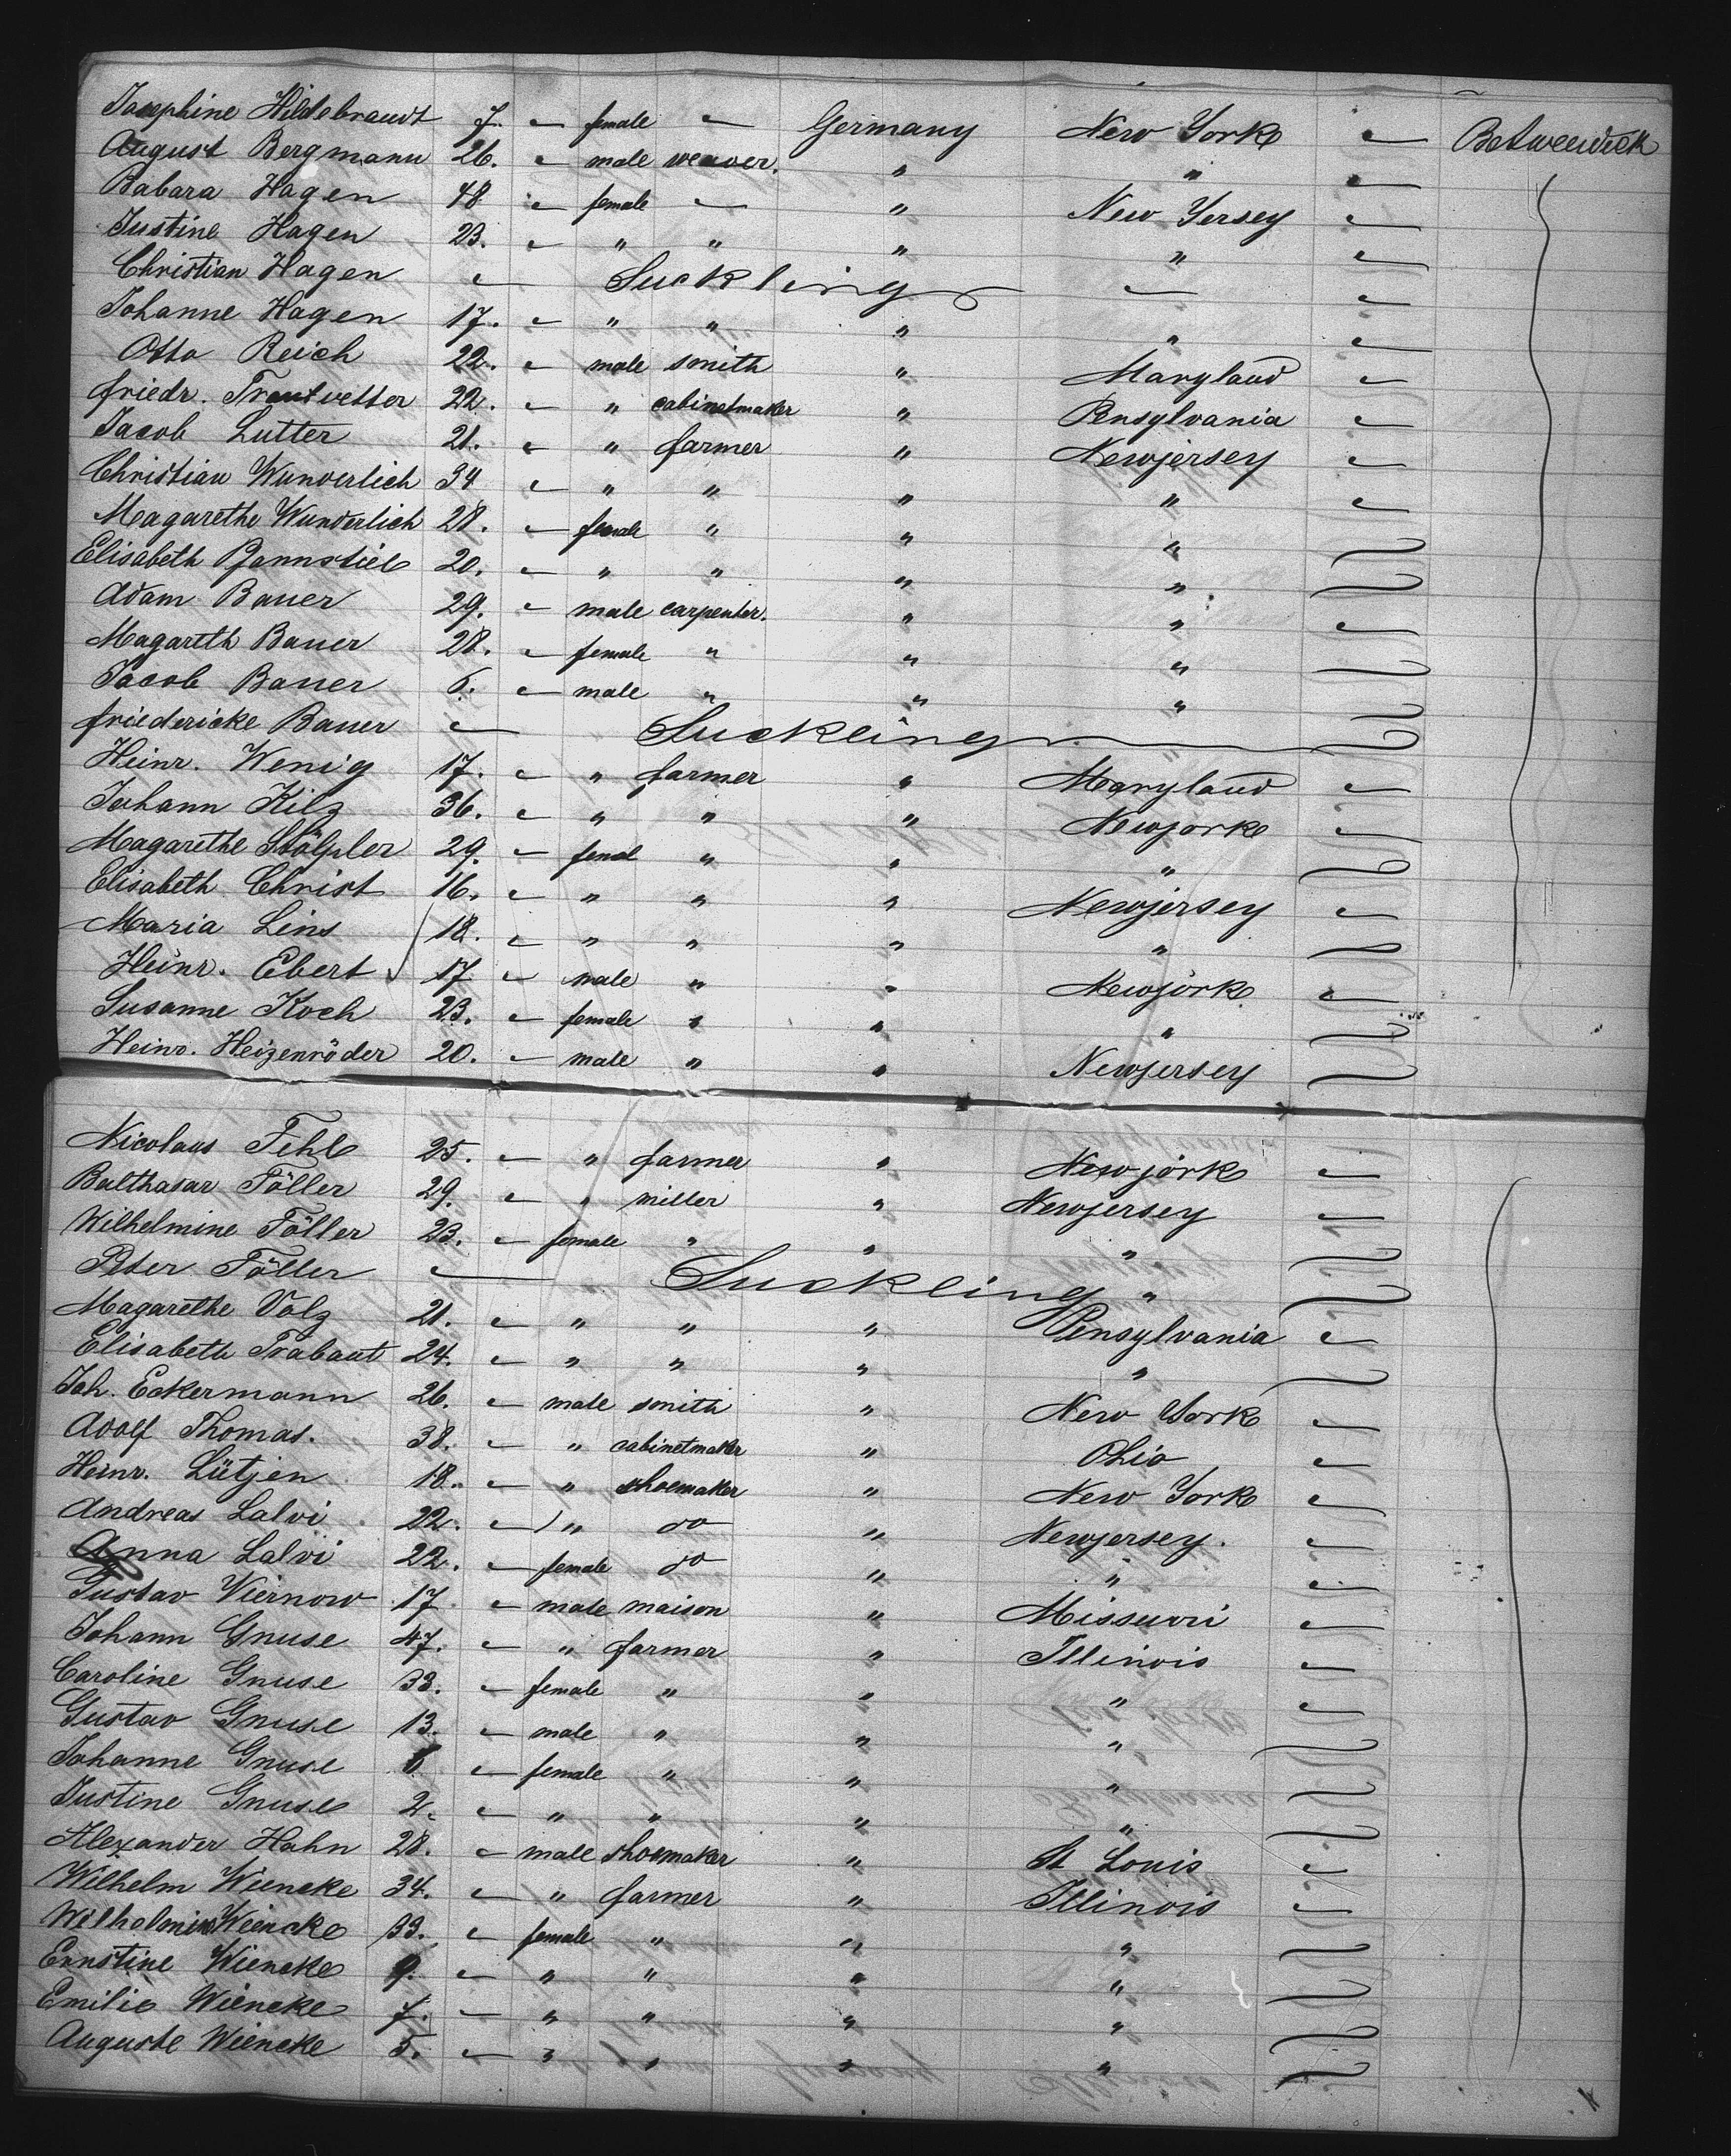 Josephine Hildebrandt 7. — female — Germany New York — Betweendeck
August Bergmann 26. — male weaver. " " —
Babara Hagen 48 — female — " New Yersey —
Justine Hagen 23. — " " " " —
Christian Hagen — Suckling — —
Johanne Hagen 17. — " " " " —
Otto Reich 22. — male smith " Maryland —
Friedr. Trautvetter 22. — " cabinetmaker " Pensylvania —
Jacob Lutter 21. — " farmer " Newjersey —
Christian Wunderlich 34 — " " " " —
Magarethe Wunderlich 28. — female " " "
Elisabeth Pfannstiel 20. — " " " "
Adam Bauer 29. — male carpenter. " " —
Magareth Bauer 28. — female " " "
Jacob Bauer 6. — male " " "
Friedericke Bauer — " Suckling
Heinr. Wenig 17. — " farmer " Maryland —
Johann Kilz 36. — " " " Newjorke —
Magarethe Stölpler 29. — femal " " "
Elisabeth Christ 16. — " " " Newjersey —
Maria Lins 18. — " " " "
Heinr. Ebert 17 — male " " Newjork —
Susanne Koch 23. — female " " "
Heinr. Heizenröder 20. — male " " Newjersey
Nicolaus Fehl 25. — " farmer " Newjork —
Balthasar Föller 29. — " miller " Newjersey —
Wilhelmine Föller 23. — female " " "
Peter Föller — Suckling "
Magarethe Volz 21. — " " " Pensylvania —
Elisabeth Trabant 24. — " " " "
Joh. Eckermann 26. — male smith " New York —
Adolf Thomas. 38. — " cabinetmaker " Ohio —
Heinr. Lütjen 18. — " shoemaker " New York —
Andreas Lalvi 22. — " do " Newjersey. —
Anna Lalvi 22. — female do " " —
Gustav Viernow 17 — male maison " Missuuri —
Johann Gnuse 47. — " farmer " Illinois —
Caroline Gnuse 33. — female " " " —
Gustav Gnuse 13. — male " " "
Johanne Gnuse — female " " "
Justine Gnuse 2. — " " " "
Alexander Hahn 28. — male shoemaker " St Louis —
Wilhelm Wiencke 34. — " farmer " Illinois —
Wilhelmine Wiencke 33. — female " " "
Ernstine Wiencke 9. — " " " "
Emilie Wiencke 7. — " " " "
Auguste Wiencke 5. — " " " "